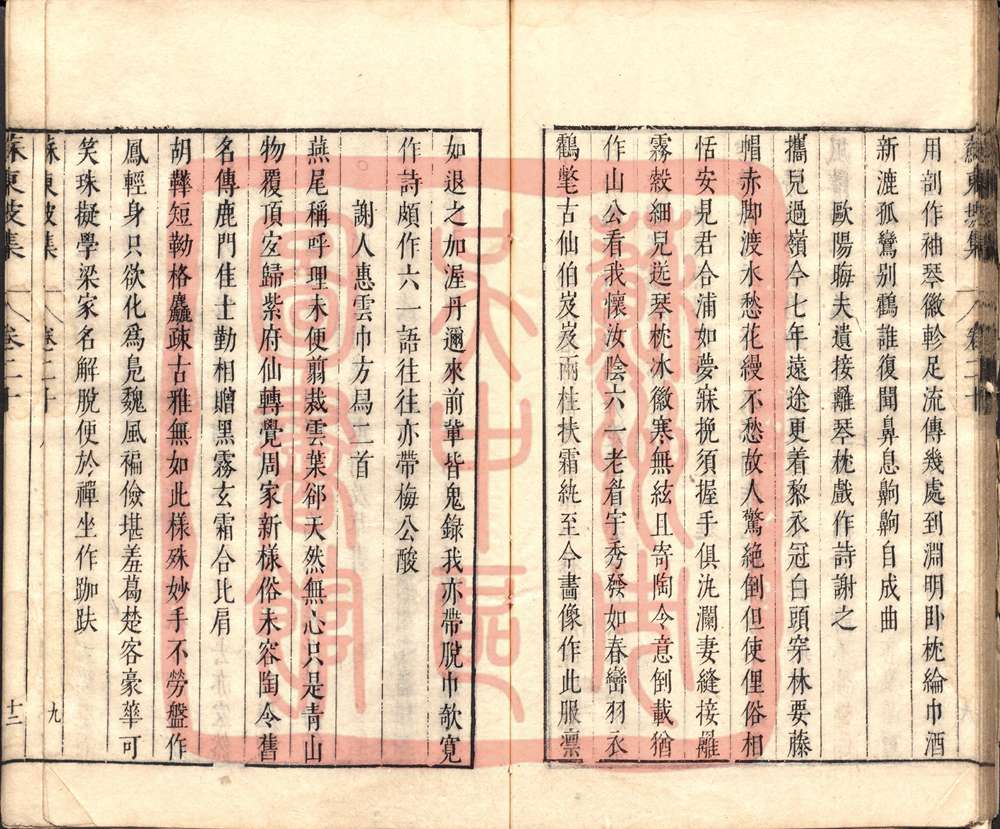 蘇東坡集 卷二十
用剖作袖琴徽軫足流傳幾處到淵明臥枕綸巾酒
新漉孤鸞別鶴誰復聞鼻息齁齁自成曲
歐陽晦夫遺接䍦琴枕戲作詩謝之
攜兒過嶺今七年遠途更着黎衣冠白頭穿林要藤
帽赤脚渡水愁花縵不愁故人驚絕倒但使俚俗相
恬安見君合浦如夢寐挽須握手俱汍瀾妻縫接䍦
霧縠細兒送琴枕冰徽寒無絃且寄陶令意倒載猶
作山公看我懷汝陰六一老眉宇秀發如春巒羽衣
鶴氅古仙伯岌岌兩柱扶霜紈至今畫像作此服凛
如退之加渥丹邇來前輩皆鬼錄我亦帶脫巾欹寬
作詩頗作六一語往往亦帶梅公酸
謝人惠雲巾方舄二首
燕尾稱呼理未便翦裁雲葉郤天然無心只是青山
物覆頂宜歸紫府仙轉覺周家新樣俗未容陶令舊
名傳鹿門佳士勤相贈黑霧玄霜合比肩
胡鞾短靿格麤疎古雅無如此樣殊妙手不勞盤作
鳳輕身只欲化爲鳬魏風褊儉堪羞葛楚客豪華可
笑珠擬學梁家名解脫便於禪坐作跏趺
蘇東坡集 卷二十 九
蘇東坡集 卷二十 十二
蘇州市
文中區
圖書館